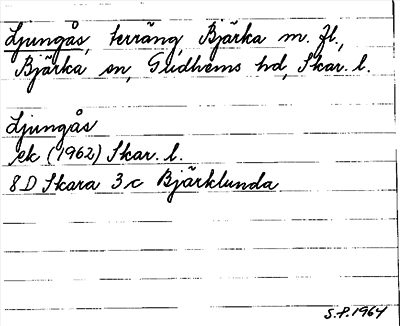 Ljungås, terräng, Bjärka m. fl.,
Bjärka sn, Gudhems hd, Skar. l.
Ljungås
ek (1962) Skar. l.
8D Skara 3c Bjärklunda
S.P. 1964